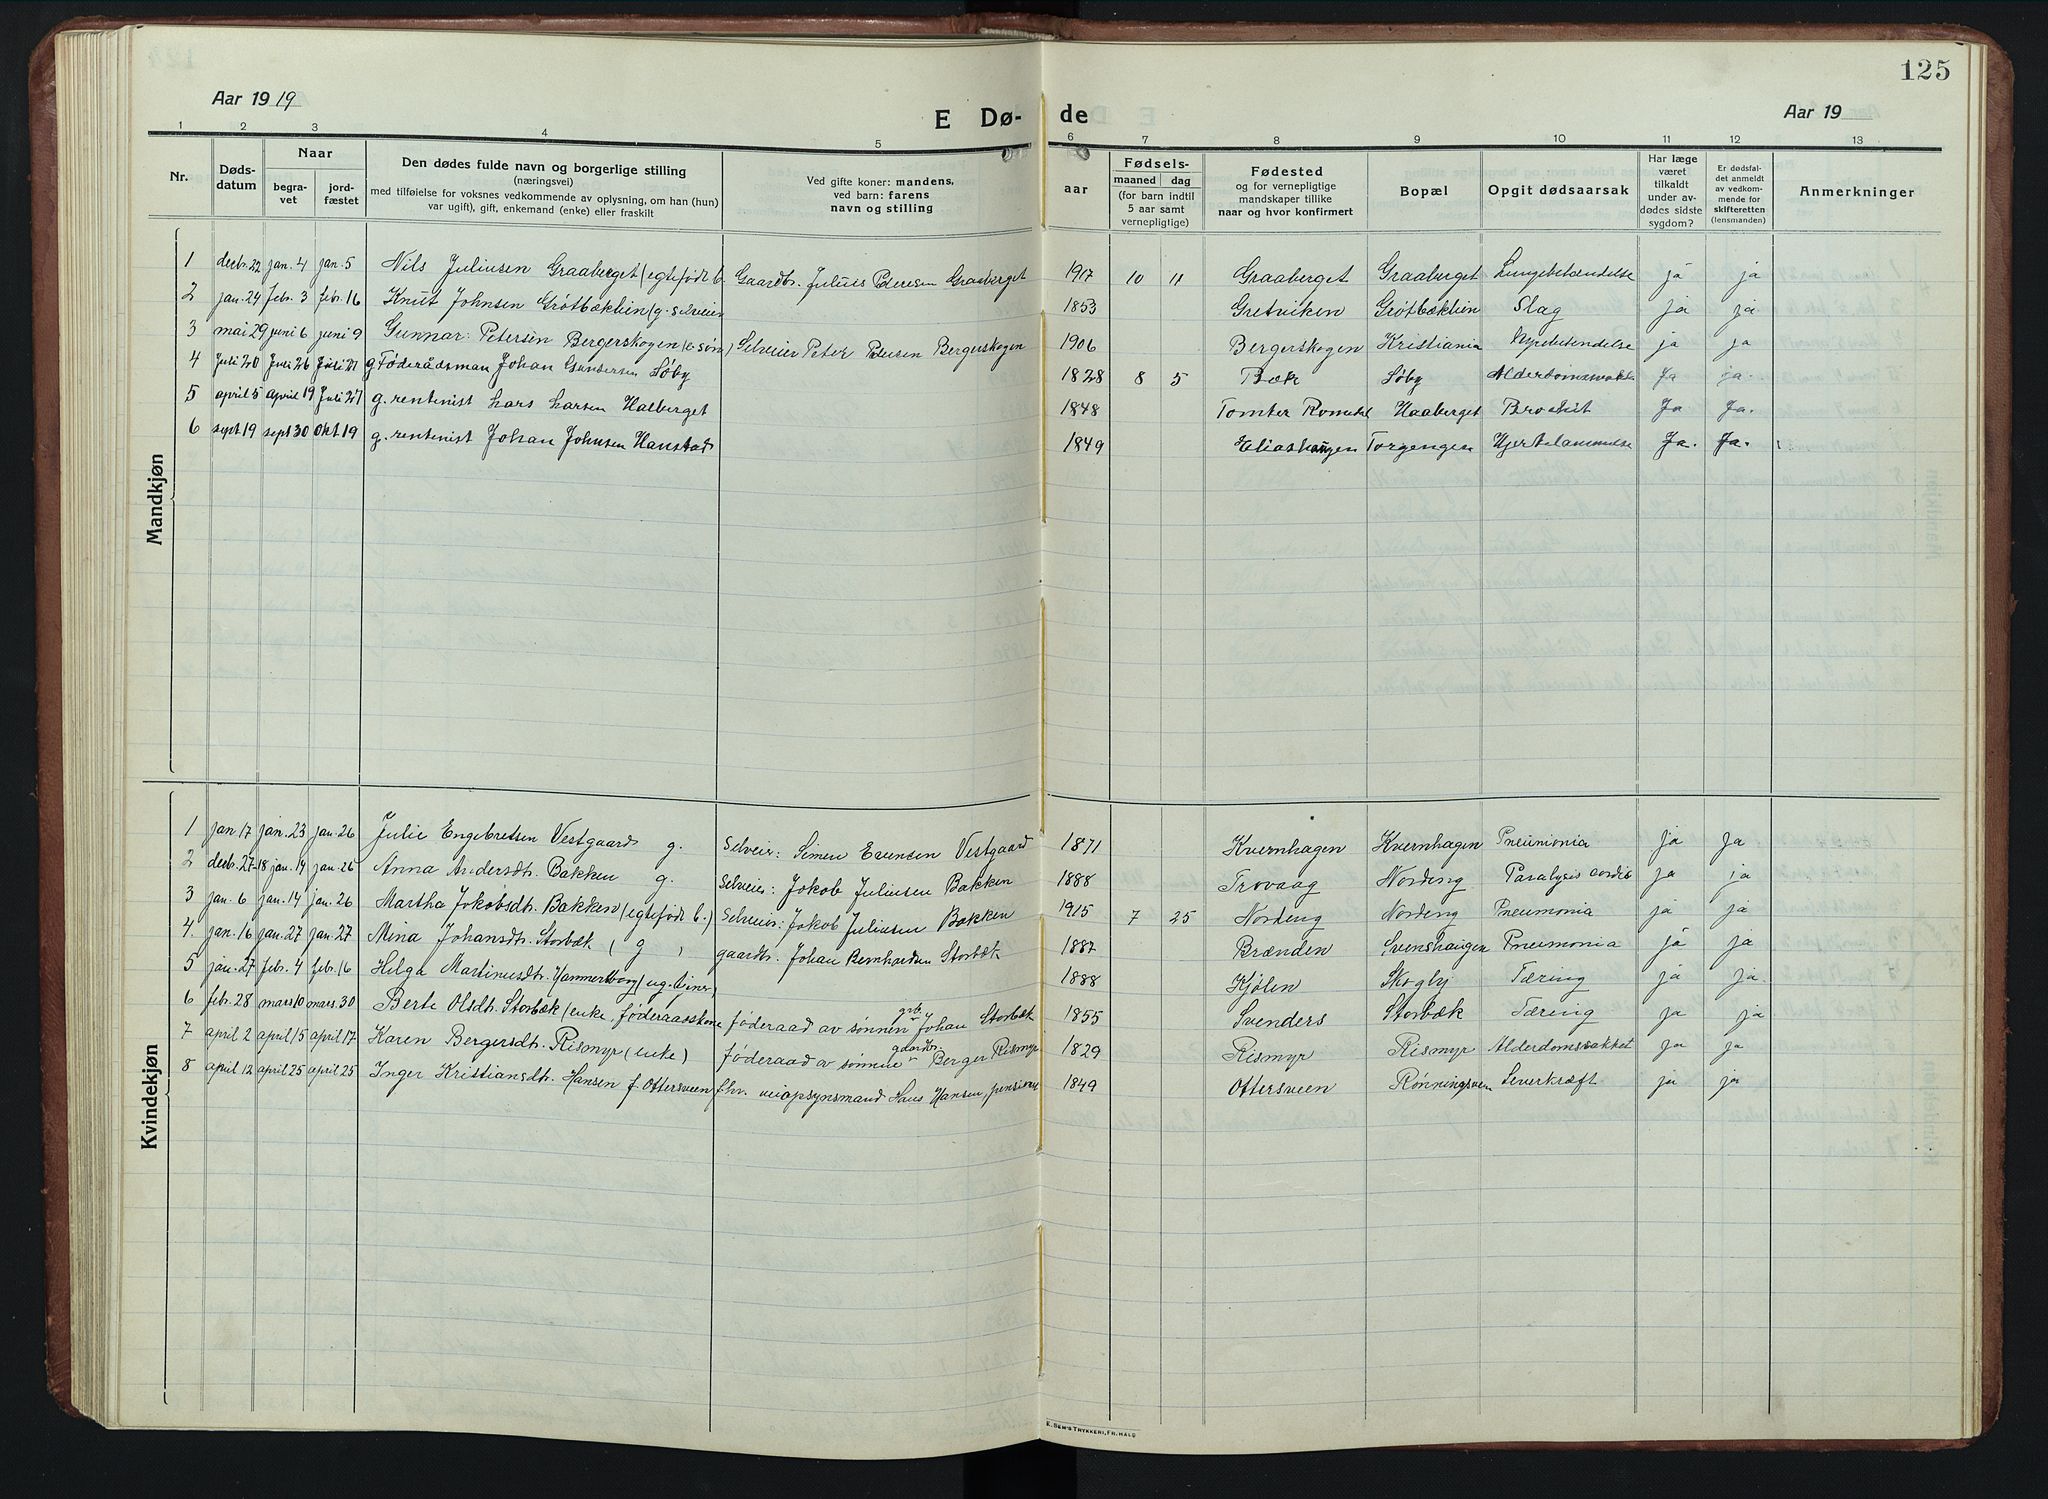 125
Aar 1919
Aar 19
E Dø- de
1 2 3 4 5 6 7 8 9 10 11 12 13
Nr.
Døds-
datum
Naar
begra-
vet
jord-
fæstet
Den dødes fulde navn og borgerlige stilling
(næringsvei)
med tilføielse for voksnes vedkommende av oplysning, om han (hun)
var ugift), gift, enkemand (enke) eller fraskilt
Ved gifte koner: mandens,
ved barn: farens
navn og stilling
aar
Fødsels-
maaned dag
(for barn indtil
5 aar samt
vernepligtige)
Fødested
og for vernepligtige
mandskaper tillike
naar og hvor konfirmert
Bopæl
Opgit dødsaarsak
Har læge
været
tilkaldt
under av-
dødes sidste
sygdom?
Er dødsfal-
det anmeldt
av vedkom-
mende for
skifteretten
(lensmanden)
Anmerkninger
Mandkjøn
1 decbr. 22 jan. 4 jan. 5 Nils Juliusen Graaberget (egtefødt b. Gaardbr. Julius Pedersen Graaberget 1917 10 11 Graaberget Graaberget Lungebetændelse ja ja
2 jan. 24 febr. 3 febr. 16 Knut Johnsen Grøtbæklien (g. selveier 1853 Gretviken Grøtbæklien Slag ja ja
3 mai 29 juni 6 juni 9 Gunnar Petersen Bergerskogen (e. søn) Selveier Peter Petersen Bergerskogen 1906 Bergerskogen Kristiania Nyrebetendelse ja ja
4 Juli 20 Juli 26 Juli 27 g. Føderådsman Johan Gundersen Søby 1828 8 5 Bæk Søby Alderdomssvakh. Ja ja.
5 april 5 april 19 Juli 27 g. rentenist Lars Larsen Halberget 1848 Tomter Romedal Haaberget Ja Ja.
6 sept 19 sept 30 Okt 19 g. rentenist Johan Johnsen Hanstad 1849 Eliashaugen Torgengen Hjertelammelse Ja. Ja.
Kvindekjøn
1 jan 17 jan. 23 jan. 26 Julie Engebretsen Vestgaard g. Selveier: Simen Evensen Vestgaard 1871 Kvernhagen Kvernhagen Pneumonia ja ja
2 decbr. 27-18 jan. 14 jan. 26 Anna Andersdtr. Bakken g. Selveier: Jakob Juliusen Bakken 1888 Trovaag Nordeng Paralysis cordis ja ja
3 jan. 6 jan. 14 jan. 26 Martha Jakobsdtr. Bakken (egtefødt b.) Selveier: Jakob Juliusen Bakken 1915 7 25 Nordeng Nordeng Pneumonia ja ja
4. jan. 16 jan. 27 jan. 27 Mina Johansdtr. Storbæk (g) gaardbr. Johan Bernhardsen Storbæk 1887 Brænden Svenshaugen Pneumonia ja ja
5 jan. 27 febr. 4 febr. 16 Hilga Martinusdtr. Hammertborg (ug. tjener) 1888 Kjølen Skogly Tæring ja ja.
6 febr. 28 mars 10 mars. 30 Berte Olsdtr. Storbæk (enke, føderaadskone føderaad av sønnen grb. Johan Storbæk 1855 Svenders Storbæk Tæring ja ja
7 april 2 april 15 april 17 Karen Bergersdtr. Rismyr (enke) føderaad av sønnen gaardbr. Berger Rismyr 1829 Rismyr Rismyr Alderdomssvakhet ja ja
8 april 12 april 25 april 25 Inger Kristiansdtr. Hansen f. Ottersveen fhv. veiopsynsmand Hans Hansen, 1849 Ottersveen Rønningsveen Leverkræft ja ja
E. SEM'S TRYKKERI, FR.HALD